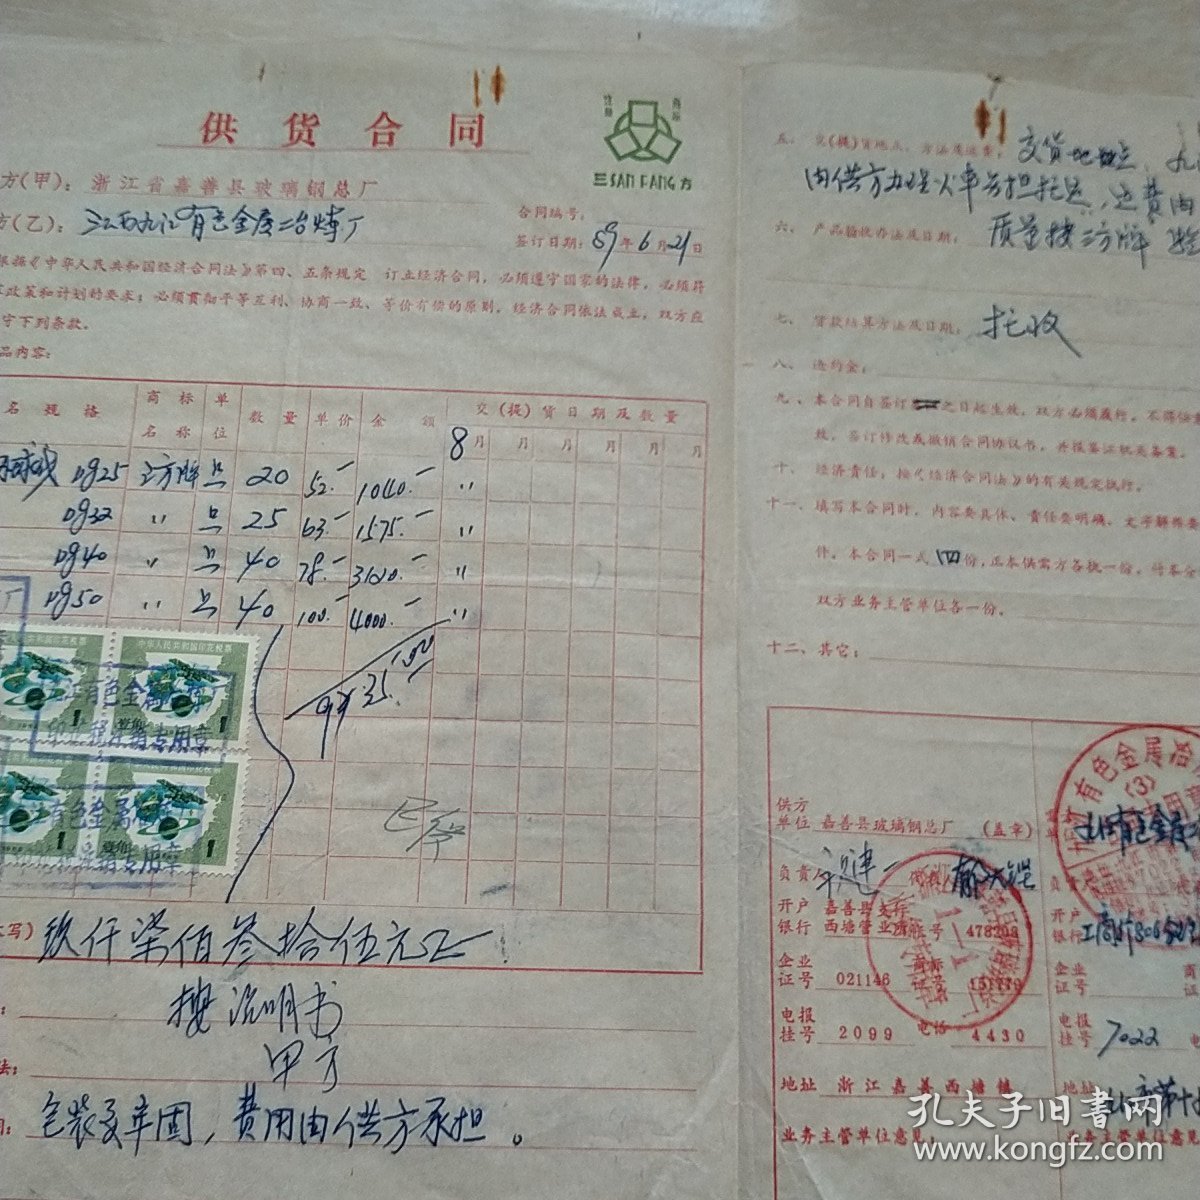 供货合同
注册 商标
三SAN FANG方
方(甲)：浙江省嘉善县玻璃钢总厂
方(乙)：江西九江有色金属冶炼厂
合同编号：
签订日期：89年6月21日
根据《中华人民共和国经济合同法》第四、五条规定 订立经济合同，必须遵守国家的法律，必须符
政策和计划的要求；必须贯彻平等互利、协商一致、等价有偿的原则，经济合同依法成立，双方应
守下列条款。
品内容：
名 规格 商标名称 单位 数量 单价 金额 交(提)货日期及数量
8月 月 月 月 月 月
Dg25 三方牌 只 20 52.- 1040.- "
Dg32 " 只 25 63.- 1575.- "
Dg40 " 只 40 78.- 3120.- "
Dg50 " 只 40 100.- 4000.- "
9735.00
中华人民共和国印花税票
1 壹角
有色金属
专用章
写) 玖仟柒佰叁拾伍元正
按说明书
法：甲方
包装要牢固，费用由供方承担。
五、交(提)货地点、方法及运费：交货地点，九
由供方办理火车另担托运，运费由
六、产品验收办法及日期：质量按三方牌
七、货款结算方法及日期：托收
八、违约金：
九、本合同自签订之日起生效，双方必须履行，不得
致，签订修改或撤销合同协议书，并报鉴证机关备案。
十、经济责任：按《经济合同法》的有关规定执行。
十一、填写本合同时，内容要具体、责任要明确、文字解释要
件。本合同一式四份，正本供需方各执一份，付本分
双方业务主管单位各一份。
十二、其它：
供方单位 嘉善县玻璃钢总厂 (盖章)
负责人 代表
开户银行 嘉善县支行西塘营业所 帐号 478208
企业证号 021146 商标证号 151779
电报挂号 2099 电话 4430
地址 浙江嘉善西塘镇
业务主管单位意见：
有色金属冶
(3)
负责
开户银行 工商
企业证号
电报挂号 7022
地址
业务主管单位意见
孔夫子旧书网
www.kongfz.com